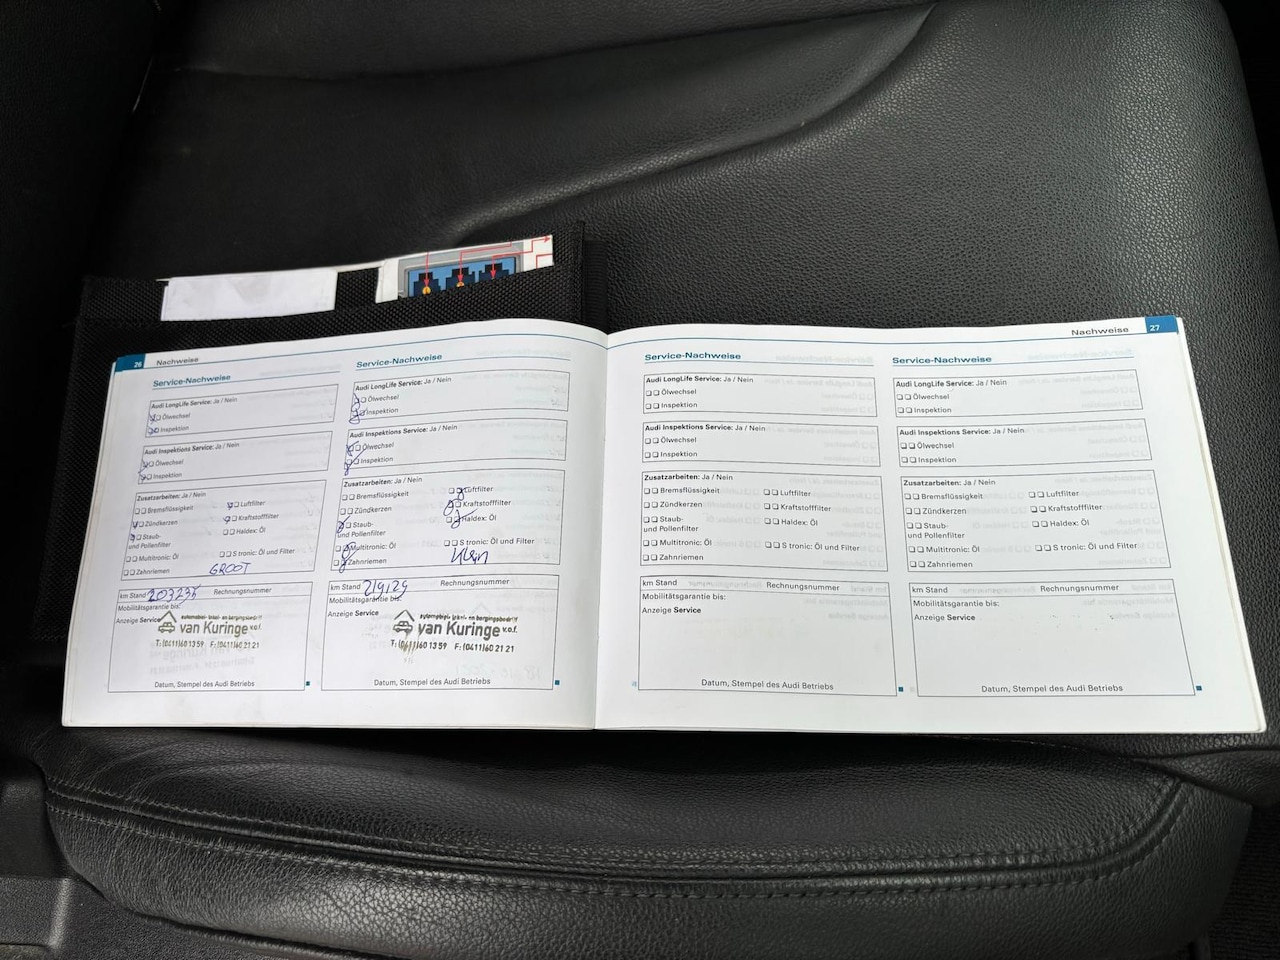 26 Nachweise
Service-Nachweise
Audi LongLife Service: Ja / Nein
Ölwechsel
Inspektion
Audi Inspektions Service: Ja / Nein
Ölwechsel
Inspektion
Zusatzarbeiten: Ja / Nein
Bremsflüssigkeit
Luftfilter
Zündkerzen
Kraftstofffilter
Staub-
und Pollenfilter
Haldex: Öl
Multitronic: Öl
S tronic: Öl und Filter
Zahnriemen
GROOT
km Stand 203235
Rechnungsnummer
Mobilitätsgarantie bis:
Anzeige Service
automobiel- takel- en bergingsbedrijf
van Kuringe v.o.f.
T: (0411)60 13 59 F: (0411)60 21 21
Datum, Stempel des Audi Betriebs
Service-Nachweise
Audi LongLife Service: Ja / Nein
Ölwechsel
Inspektion
Audi Inspektions Service: Ja / Nein
Ölwechsel
Inspektion
Zusatzarbeiten: Ja / Nein
Bremsflüssigkeit
Luftfilter
Zündkerzen
Kraftstofffilter
Staub-
und Pollenfilter
Haldex: Öl
Multitronic: Öl
S tronic: Öl und Filter
Zahnriemen
Klein
km Stand 219129
Rechnungsnummer
Mobilitätsgarantie bis:
Anzeige Service
automobiel- takel- en bergingsbedrijf
van Kuringe v.o.f.
T: (0411)60 13 59 F: (0411)60 21 21
Datum, Stempel des Audi Betriebs
Nachweise 27
Service-Nachweise
Audi LongLife Service: Ja / Nein
Ölwechsel
Inspektion
Audi Inspektions Service: Ja / Nein
Ölwechsel
Inspektion
Zusatzarbeiten: Ja / Nein
Bremsflüssigkeit
Luftfilter
Zündkerzen
Kraftstofffilter
Staub-
und Pollenfilter
Haldex: Öl
Multitronic: Öl
S tronic: Öl und Filter
Zahnriemen
km Stand
Rechnungsnummer
Mobilitätsgarantie bis:
Anzeige Service
Datum, Stempel des Audi Betriebs
Service-Nachweise
Audi LongLife Service: Ja / Nein
Ölwechsel
Inspektion
Audi Inspektions Service: Ja / Nein
Ölwechsel
Inspektion
Zusatzarbeiten: Ja / Nein
Bremsflüssigkeit
Luftfilter
Zündkerzen
Kraftstofffilter
Staub-
und Pollenfilter
Haldex: Öl
Multitronic: Öl
S tronic: Öl und Filter
Zahnriemen
km Stand
Rechnungsnummer
Mobilitätsgarantie bis:
Anzeige Service
Datum, Stempel des Audi Betriebs